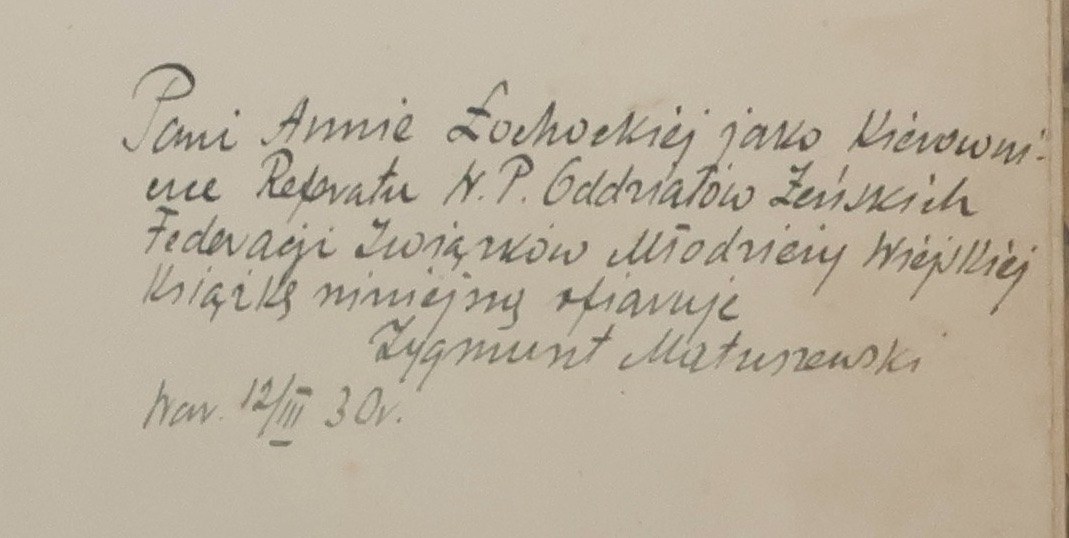 Pani Annie Łochockiej jako Kierowni-
czce Referatu W.P. Oddziałów Żeńskich
Federacji Związków Młodzieży Wiejskiej
Książkę niniejszą ofiaruje
Zygmunt Matuszewski
War. 12/III 30r.